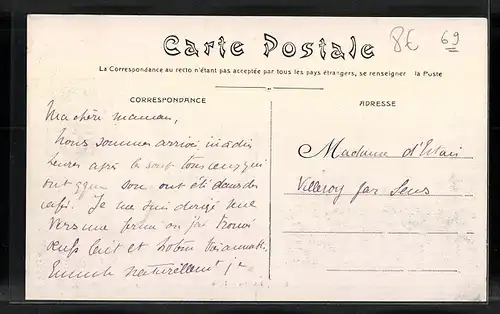 Carte Postale
8€ 69
La Correspondance au recto n'étant pas acceptée par tous les pays étrangers, se renseigner à la Poste
CORRESPONDANCE
ADRESSE
Ma chère maman,
Nous sommes arrivés à dix
heures après le tous ceux qui
ont son ont été dans des
cafés. Je me suis dirigé
vers une ferme ou j'ai trouvé
œufs lait et
Ensuite naturellement je
Madame d'
Villeroy par Sens